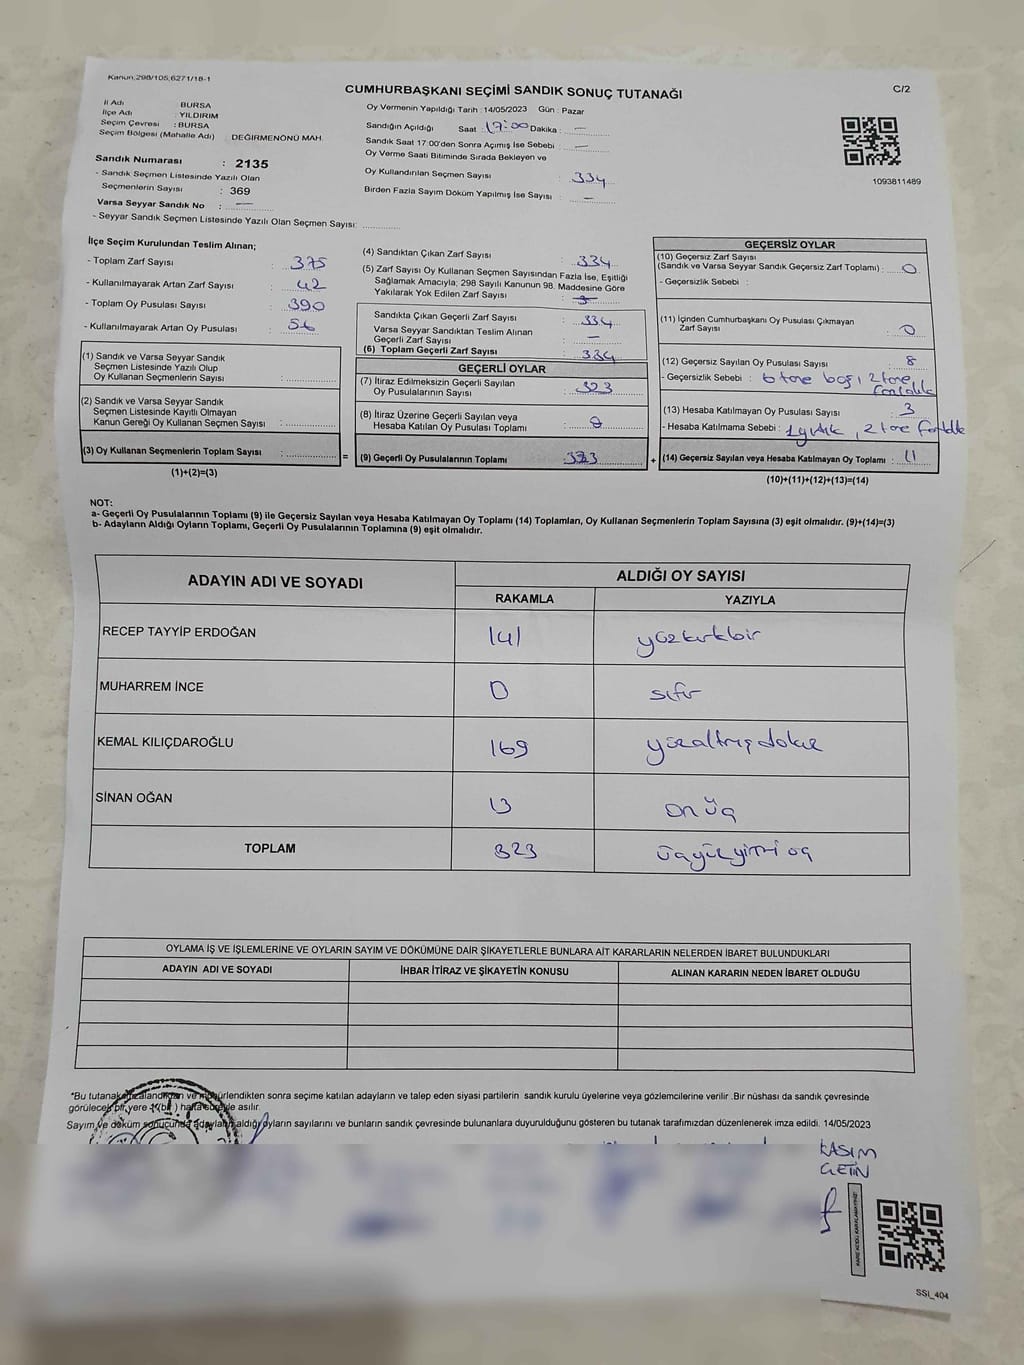 Kanun:298/105;6271/18-1
CUMHURBAŞKANI SEÇİMİ SANDIK SONUÇ TUTANAĞI
C/2
İl Adı : BURSA
İlçe Adı : YILDIRIM
Seçim Çevresi : BURSA
Seçim Bölgesi (Mahalle Adı) : DEĞİRMENÖNÜ MAH.
Sandık Numarası : 2135
- Sandık Seçmen Listesinde Yazılı Olan
Seçmenlerin Sayısı : 369
Varsa Seyyar Sandık No : —
- Seyyar Sandık Seçmen Listesinde Yazılı Olan Seçmen Sayısı:
Oy Vermenin Yapıldığı Tarih : 14/05/2023 Gün : Pazar
Sandığın Açıldığı Saat : 17:00 Dakika : —
Sandık Saat 17:00'den Sonra Açımış İse Sebebi : —
Oy Verme Saati Bitiminde Sırada Bekleyen ve
Oy Kullandırılan Seçmen Sayısı : 334
Birden Fazla Sayım Döküm Yapılmış İse Sayısı : —
1093811489
İlçe Seçim Kurulundan Teslim Alınan;
- Toplam Zarf Sayısı : 375
- Kullanılmayarak Artan Zarf Sayısı : 42
- Toplam Oy Pusulası Sayısı : 390
- Kullanılmayarak Artan Oy Pusulası : 56
(1) Sandık ve Varsa Seyyar Sandık
Seçmen Listesinde Yazılı Olup
Oy Kullanan Seçmenlerin Sayısı :
(2) Sandık ve Varsa Seyyar Sandık
Seçmen Listesinde Kayıtlı Olmayan
Kanun Gereği Oy Kullanan Seçmen Sayısı :
(3) Oy Kullanan Seçmenlerin Toplam Sayısı :
(1)+(2)=(3)
=
(4) Sandıktan Çıkan Zarf Sayısı : 334
(5) Zarf Sayısı Oy Kullanan Seçmen Sayısından Fazla İse, Eşitliği
Sağlamak Amacıyla; 298 Sayılı Kanunun 98. Maddesine Göre
Yakılarak Yok Edilen Zarf Sayısı :
Sandıkta Çıkan Geçerli Zarf Sayısı : 334
Varsa Seyyar Sandıktan Teslim Alınan
Geçerli Zarf Sayısı : —
(6) Toplam Geçerli Zarf Sayısı : 334
GEÇERLİ OYLAR
(7) İtiraz Edilmeksizin Geçerli Sayılan
Oy Pusulalarının Sayısı : 323
(8) İtiraz Üzerine Geçerli Sayılan veya
Hesaba Katılan Oy Pusulası Toplamı :
(9) Geçerli Oy Pusulalarının Toplamı : 323
+
GEÇERSİZ OYLAR
(10) Geçersiz Zarf Sayısı
(Sandık ve Varsa Seyyar Sandık Geçersiz Zarf Toplamı) : 0
- Geçersizlik Sebebi :
(11) İçinden Cumhurbaşkanı Oy Pusulası Çıkmayan
Zarf Sayısı : 0
(12) Geçersiz Sayılan Oy Pusulası Sayısı : 8
- Geçersizlik Sebebi : 6 tane boş, 2 tane
(13) Hesaba Katılmayan Oy Pusulası Sayısı : 3
- Hesaba Katılmama Sebebi : 1 yırtık, 2 tane
(14) Geçersiz Sayılan veya Hesaba Katılmayan Oy Toplamı : 11
(10)+(11)+(12)+(13)=(14)
NOT:
a- Geçerli Oy Pusulalarının Toplamı (9) ile Geçersiz Sayılan veya Hesaba Katılmayan Oy Toplamı (14) Toplamları, Oy Kullanan Seçmenlerin Toplam Sayısına (3) eşit olmalıdır. (9)+(14)=(3)
b- Adayların Aldığı Oyların Toplamı, Geçerli Oy Pusulalarının Toplamına (9) eşit olmalıdır.
ADAYIN ADI VE SOYADI
ALDIĞI OY SAYISI
RAKAMLA YAZIYLA
RECEP TAYYİP ERDOĞAN 141 yüzkırkbir
MUHARREM İNCE 0 sıfır
KEMAL KILIÇDAROĞLU 169 yüzaltmışdokuz
SİNAN OĞAN 13 on üç
TOPLAM 323 üçyüzyirmi üç
OYLAMA İŞ VE İŞLEMLERİNE VE OYLARIN SAYIM VE DÖKÜMÜNE DAİR ŞİKAYETLERLE BUNLARA AİT KARARLARIN NELERDEN İBARET BULUNDUKLARI
ADAYIN ADI VE SOYADI İHBAR İTİRAZ VE ŞİKAYETİN KONUSU ALINAN KARARIN NEDEN İBARET OLDUĞU
*Bu tutanak imzalandıktan ve mühürlendikten sonra seçime katılan adayların ve talep eden siyasi partilerin sandık kurulu üyelerine veya gözlemcilerine verilir .Bir nüshası da sandık çevresinde
görülecek bir yere 1 (bir ) hafta süreyle asılır.
Sayım ve döküm sonucunda adayların aldığı oyların sayılarını ve bunların sandık çevresinde bulunanlara duyurulduğunu gösteren bu tutanak tarafımızdan düzenlenerek imza edildi. 14/05/2023
KASIM
ÇETİN
SSI_404